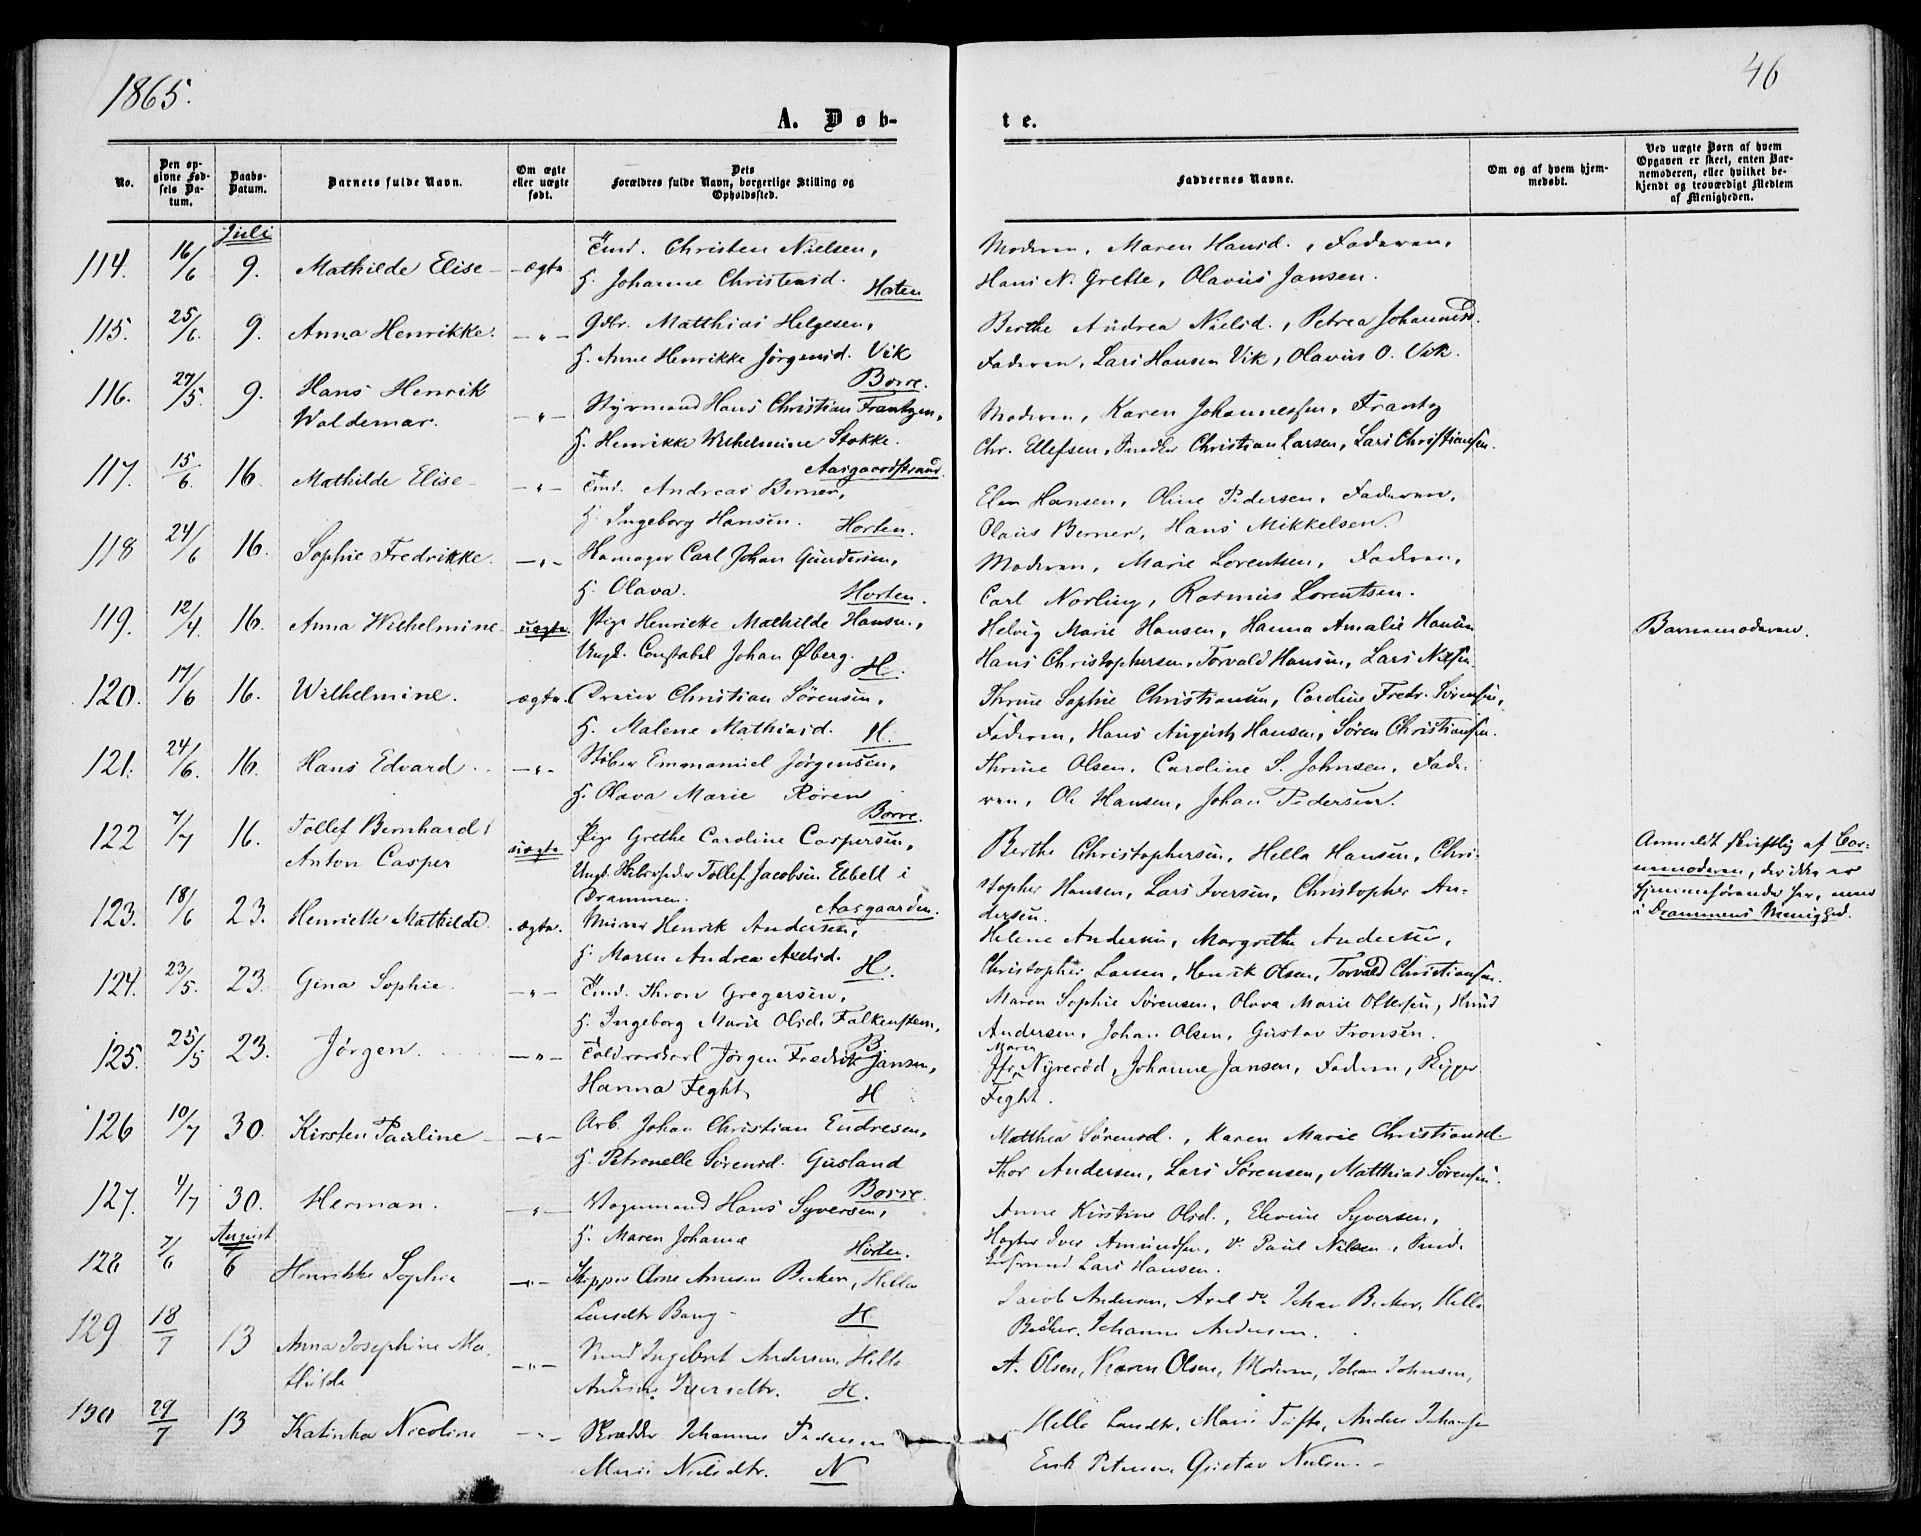 1865.
46
A. Døb-
te.
No.
Den op-
givne Fød-
sels Da-
tum.
Daabs-
Datum.
Barnets fulde Navn.
Om ægte
eller uægte
født.
Dets
Forældres fulde Navn, borgerlige Stilling og
Opholdssted.
Faddernes Navne.
Om og af hvem hjem-
medøbt.
Ved uægte Børn af hvem
Opgaven er skeet, enten Bar-
nemoderen, eller hvilket be-
kjendt og troværdigt Medlem
af Menigheden.
Juli
114. 16/6 9. Mathilde Elise ægte Tmd. Christen Nielsen,
H. Johanne Christensd. Horten
Moderen, Maren Hansd., Faderen,
Hans N. Grette, Olavus Jansen.
115. 25/6. 9. Anna Henrikke. -"- Gbr. Matthias Helgesen,
H. Anne Henrikke Jørgensd. Vik
Borre.
Berthe Andrea Nielsd., Petrea Johannesd.
Faderen, Lars Hansen Vik, Olavus O. Vik.
116. 27/5. 9. Hans Henrik
Waldemar. -"- Styrmand Hans Christian Frantzen,
H. Henrikke Wilhelmine Stokke.
Aasgaardstrand.
Moderen, Karen Johannessen, Frantz
Chr. Ellefsen, Christian Larsen, Lars Christiansen.
117. 15/6. 16. Mathilde Elise -"- Tmd. Andreas Berner,
H. Ingeborg Hansen. Horten.
Elen Hansen, Oline Pedersen, Faderen,
Olaus Berner, Hans Mikkelsen.
118 24/6 16. Sophie Fredrikke. -"- Kanoner Carl Johan Gundersen,
H. Olava. Horten.
Moderen, Marie Lorentsen, Faderen,
Carl Norling, Rasmus Lorentsen.
119. 12/4. 16. Anna Wilhelmine uægte Pige Henriette Mathilde Hansen,
Ungk. Constabel Johan Øberg. H.
Helvig Marie Hansen, Hanna Amalie Hansen
Hans Christophersen, Torvald Hansen, Lars Nilsen.
Barnemoderen.
120. 17/6 16. Wilhelmine. ægte. Dreier Christian Sørensen,
H. Malene Mathiasd. H.
Thrine Sophie Christiansen, Caroline Fredr. Sørensen,
Faderen, Hans August Hansen, Søren Christiansen.
121. 24/6. 16. Hans Edvard. -"- Støber Emmanuel Jørgensen,
H. Olava Marie Røren
Borre.
Thrine Olsen, Caroline S. Johnsen, Fade-
ren, Ole Hansen, Johan Pedersen.
122 7/7 16. Tollef Bernhard
Anton Casper uægte Pige Grethe Caroline Caspersen,
Ungk. Tollef Jacobsen Ebbell i
Drammen. Aasgaarden.
Berthe Christophersen, Hella Hansen, Chri-
stopher Hansen, Lars Iversen, Christopher An-
dersen.
Anmeldt skriftlig af Bar-
nemoderen, der ikke er
hjemmehørende her, men
i Drammens Menighed.
123. 18/6 23. Henriette Mathilde. ægte. Murer Henrik Andersen,
H. Maren Andrea Axelsd. H.
Helene Andersen, Margrethe Andersen,
Christopher Larsen, Henrik Olsen, Torvald Christiansen.
124. 23/5. 23. Gina Sophie. -"- Tmd. Thron Gregersen,
H. Ingeborg Marie Olsd. Falkensten,
B.
Maren Sophie Sørensen, Olava Marie Ottersen, Knud
Andersen, Johan Olsen, Gustav Tronsen.
125. 25/5 23. Jørgen. -"- Toldroerskarl Jørgen Fredrik Jansen,
Hanna Feght H
Jfr. Maren Nyrerød, Johanne Jansen, Faderen, Skipper
Feght.
126 10/7 30. Kirsten Pauline -"- Arb. Johan Christian Endresen,
H. Petronelle Sørensd. Gusland
Borre.
Matthea Sørensd., Karen Marie Christiansd.
Thor Andersen, Lars Sørensen, Matthias Sørensen.
127. 4/7 30. Herman. -"- Vognmand Hans Syversen,
H. Maren Johanne Horten.
Anne Kirstine Olsd., Elevine Syversen,
Iver Amundsen, Paul Nilsen,
Lars Hansen.
August
128 7/6 6 Henrikke Sophie -"- Skipper Arne Arnesen Becker, Hella
Larsdtr Bang H
Jacob Andersen, Axel do Johan Becker, Hella
Becker, Johanne Andersen.
129 18/7 13 Anna Josephine Ma-
thilde -"- Ingebret Andersen, Helle
Andrine Iversdtr. H.
A. Olsen, Karen Olsen, Moderen, Johan Johnsen,
130 29/7 13 Katinka Nicoline -"- Skrædder Johannes Pedersen
Marie Nielsdtr. N
Hella Larsdtr, Marie Tufte, Anders Johansen
Erik Petersen, Gustav Nielsen.